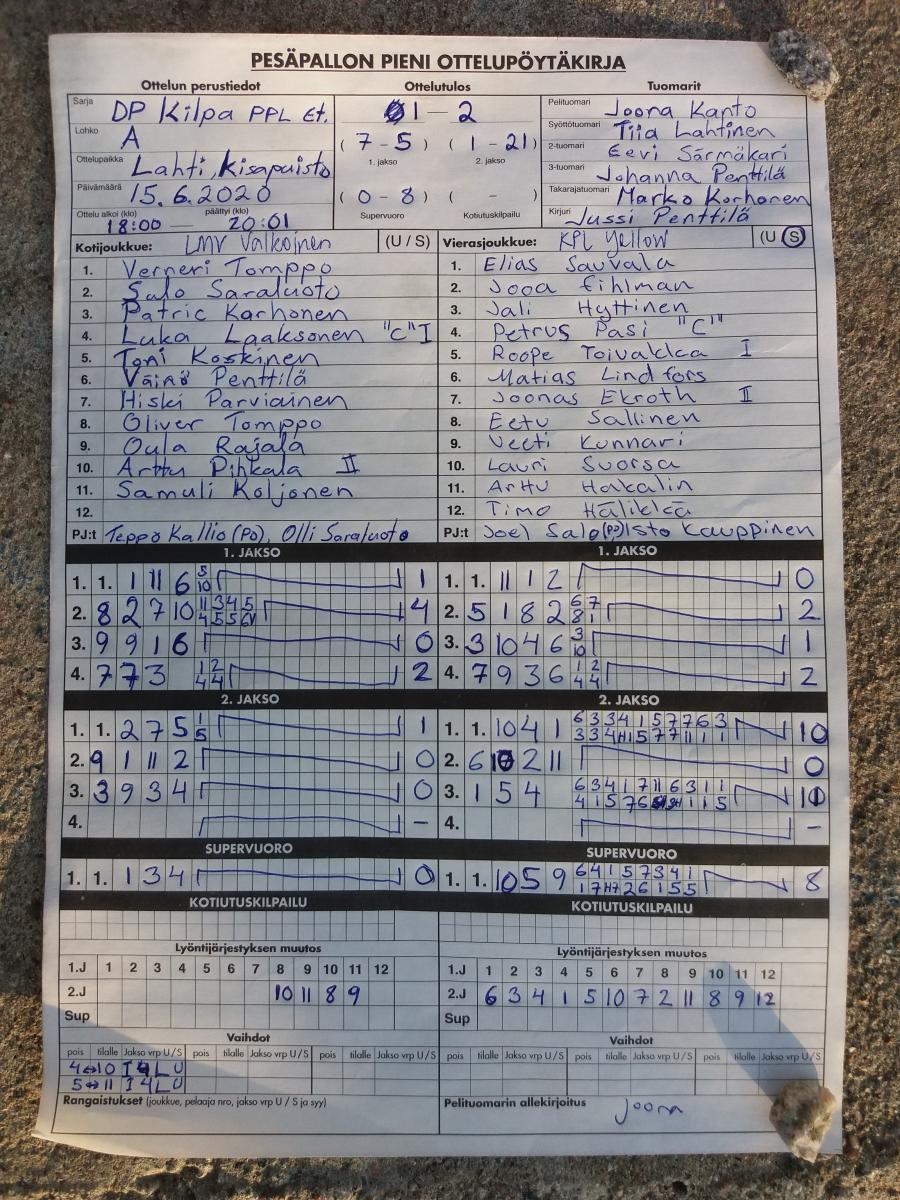 PESÄPALLON PIENI OTTELUPÖYTÄKIRJA
Ottelun perustiedot
Sarja DP Kilpa PPL Et.
Lohko A
Ottelupaikka Lahti, Kisapuisto
Päivämäärä 15.6.2020
Ottelu alkoi (klo) päättyi (klo)
18:00 — 20:01
Ottelutulos
1 - 2
( 7 - 5 ) ( 1 - 21 )
1. jakso 2. jakso
( 0 - 8 ) ( - )
Supervuoro Kotiutuskilpailu
Tuomarit
Pelituomari Joona Kanto
Syöttötuomari Tiia Lahtinen
2-tuomari Eevi Särmäkari
3-tuomari Johanna Penttilä
Takarajatuomari Marko Korhonen
Kirjuri Jussi Penttilä
Kotijoukkue: LMV Valkoinen (U / S)
1. Verneri Tomppo
2. Salo Saraluoto
3. Patric Karhonen
4. Luka Laaksonen "C" I
5. Toni Koskinen
6. Väinö Penttilä
7. Hiski Parviainen
8. Oliver Tomppo
9. Oula Rajala
10. Arttu Pihkala II
11. Samuli Koljonen
12.
PJ:t Teppo Kallio (PJ), Olli Saraluoto
Vierasjoukkue: KPL Yellow (U S)
1. Elias Sauvala
2. Jooa Fihlman
3. Jali Hyttinen
4. Petrus Pasi "C"
5. Roope Toivakka I
6. Matias Lindfors
7. Joonas Ekroth II
8. Eetu Sallinen
9. Veeti Kunnari
10. Lauri Suorsa
11. Arttu Hakalin
12. Timo
PJ:t Joel Salo (PJ) Isto Kauppinen
1. JAKSO
1. 1. 1 11 6 5 10 1
2. 8 2 7 10 11 3 4 5 4
3. 9 9 1 6 0
4. 7 7 3 1 2 4 4 2
1. JAKSO
1. 1. 11 1 2 0
2. 5 1 8 2 6 7 8 1 2
3. 3 10 4 6 3 10 1
4. 7 9 3 6 1 2 4 4 2
2. JAKSO
1. 1. 2 7 5 1 5 1
2. 9 1 11 2 0
3. 3 9 3 4 0
4. -
2. JAKSO
1. 1. 10 4 1 6 3 3 4 1 5 7 7 6 3 10
2. 6 10 2 11 0
3. 1 5 4 6 3 4 1 7 11 6 3 1 1
4. -
SUPERVUORO
1. 1. 1 3 4 0
SUPERVUORO
1. 1. 10 5 9 6 4 1 5 7 3 4 1 8
KOTIUTUSKILPAILU
KOTIUTUSKILPAILU
Lyöntijärjestyksen muutos
1.J 1 2 3 4 5 6 7 8 9 10 11 12
2.J 10 11 8 9
Sup
Lyöntijärjestyksen muutos
1.J 1 2 3 4 5 6 7 8 9 10 11 12
2.J 6 3 4 1 5 10 7 2 11 8 9 12
Sup
Vaihdot
pois tilalle Jakso vrp U/S pois tilalle Jakso vrp U/S pois tilalle Jakso vrp U/S
4↔10 I 4L U
5↔11 I 4L U
Vaihdot
pois tilalle Jakso vrp U/S pois tilalle Jakso vrp U/S pois tilalle Jakso vrp U/S
Rangaistukset (joukkue, pelaaja nro, jakso vrp U / S ja syy)
Pelituomarin allekirjoitus